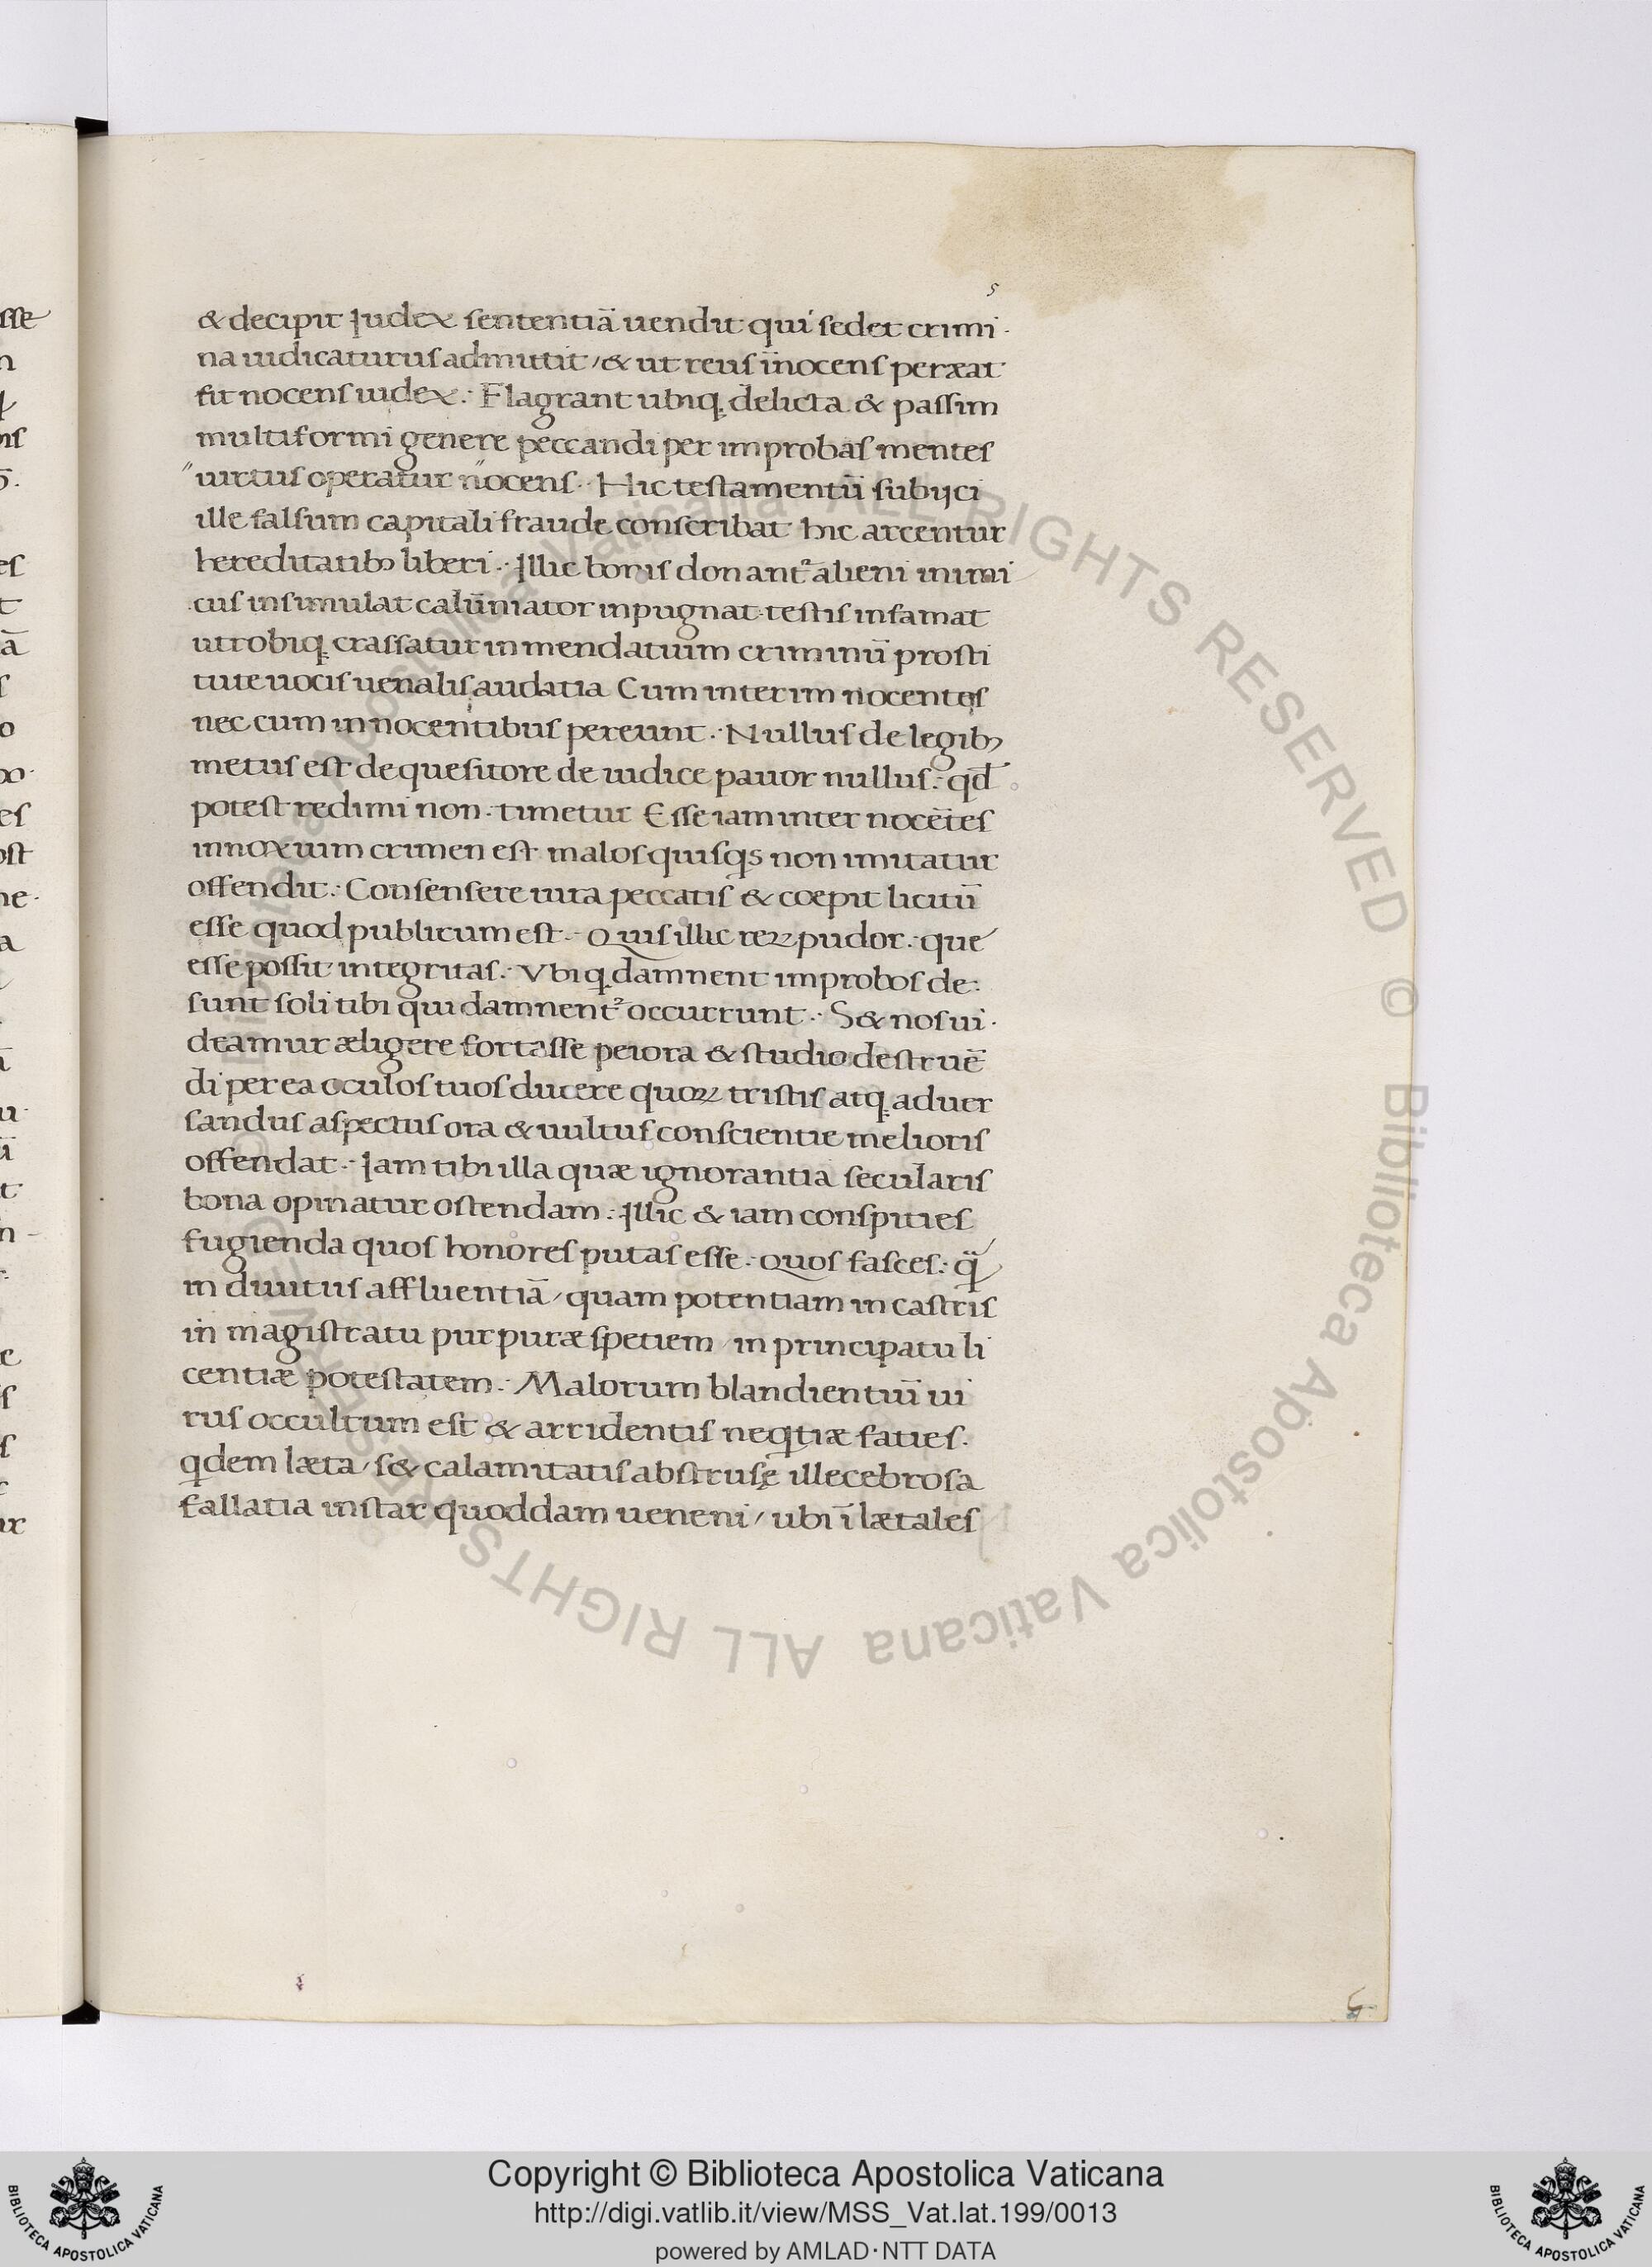 5
& decipit Judex sententiā uendit qui sedet crimi·
na iudicaturus admittit / & ut reus īnocens peræat
fit nocens iudex .· Flagrant ubiq; delicta & passim
multiformi genere peccandi per improbas mentes
"uirtus operatur "nocens .· Hic testamentū subijci
ille falsum capitali fraude conscribat hic arcentur
hereditatibꝫ liberi .· Illic bonis donant᷑ alieni inimi
cus insimulat calūniator inpugnat· testis infamat
utrobiq; crassatur in mendatium criminū prosti
tute uocis uenalis audatia Cum interim nocentes
nec cum innocentibus pereunt .· Nullus de legibꝫ
metus est de quesitore de iudice pauor nullus .· qd̄
potest redimi non · timetur Esse iam inter nocētes
innoxium crimen est malos quisqs non imitatur
offendit .· Consensere iura peccatis & coepit licitū
esse quod publicum est .· Quis illic reꝝ pudor .· que
esse possit integritas .· Vbi q; damnent improbos de:
sunt soli tibi qui damnent᷑ occurrunt .· S& nos ui·
deamur æligere fortasse peiora & studio destruē
di per ea oculos tuos ducere quoꝝ tristis atq; aduer
sandus aspectus ora & uultus conscientie melioris
offendat .· Jam tibi illa quæ ignorantia secularis
bona opinatur ostendam .· Illic & iam conspities
fugienda quos honores putas esse .· quos fasces .· q̄
in diuitus affluentiā / quam potentiam in castris
in magistratu purpuræ spetiem / in principatu li
centiæ potestatem .· Malorum blandientiū ui
rus occultum est & arridentis neqtiæ faties .
qdem læta / s& calamitatis abstrusę illecebrosa
fallatia instar quoddam ueneni / ubi ī lætales
Copyright © Biblioteca Apostolica Vaticana
http://digi.vatlib.it/view/MSS_Vat.lat.199/0013
powered by AMLAD·NTT DATA
BIBLIOTECA APOSTOLICA VATICANA
BIBLIOTECA APOSTOLICA VATICANA
© Biblioteca Apostolica Vaticana ALL RIGHTS RESERVED